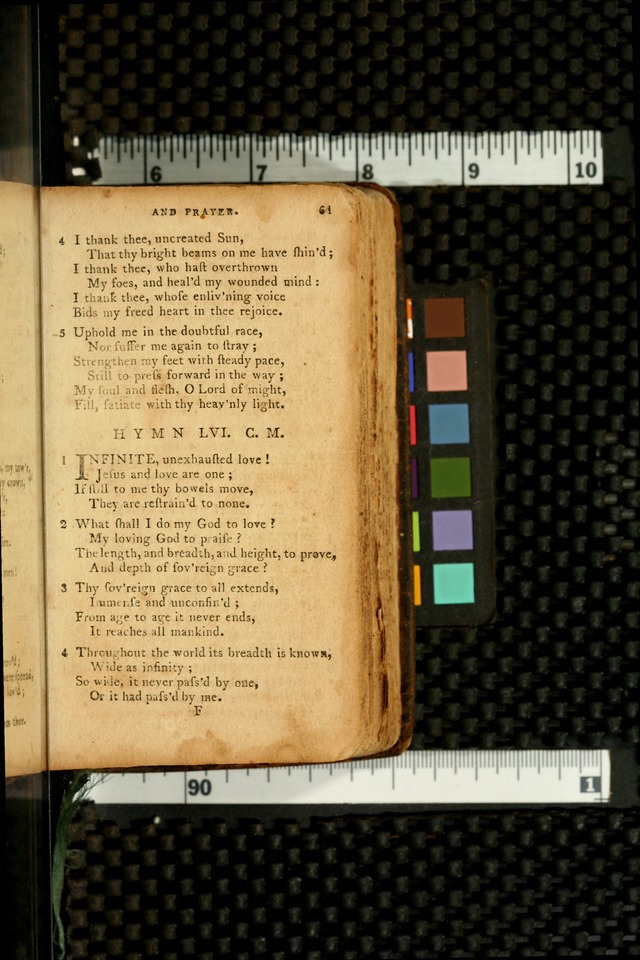 6 7 8 9 10
AND PRAYER. 61
4 I thank thee, uncreated Sun,
That thy bright beams on me have ſhin'd;
I thank thee, who haſt overthrown
My foes, and heal'd my wounded mind:
I thank thee, whoſe enliv'ning voice
Bids my freed heart in thee rejoice.
5 Uphold me in the doubtful race,
Nor ſuffer me again to ſtray;
Strengthen my feet with ſteady pace,
Still to preſs forward in the way;
My ſoul and fleſh, O Lord of might,
Fill, ſatiate with thy heav'nly light.
HYMN LVI. C. M.
1 INFINITE, unexhauſted love!
Jeſus and love are one;
If ſtill to me thy bowels move,
They are reſtrain'd to none.
2 What ſhall I do my God to love?
My loving God to praiſe?
The length, and breadth, and height, to prove,
And depth of ſov'reign grace?
3 Thy ſov'reign grace to all extends,
Immenſe and unconfin'd;
From age to age it never ends,
It reaches all mankind.
4 Throughout the world its breadth is known,
Wide as infinity;
So wide, it never paſs'd by one,
Or it had paſs'd by me.
F
90 1